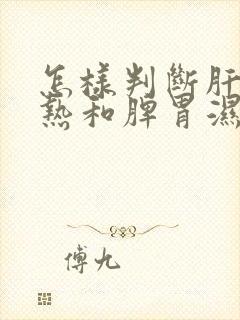 怎樣判斷肝
熱和脾胃濕
傅九